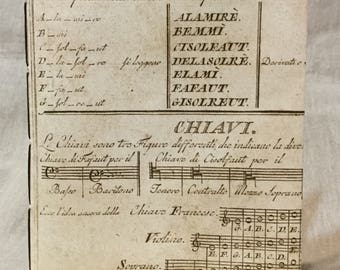 A _ la _ mi _ re ALAMIRÈ.
B _ mi BEMMÌ.
C _ Sol _ fa _ ut CISOLFAUT.
D _ la _ Sol _ re Si leggono DELASOLRÈ.
E _ la _ mi ELAMÌ.
F _ fa _ ut FAFAUT.
G _ Sol _ re _ ut GISOLREUT.
CHIAVI.
Le Chiavi sono tre Figure differenti che indicano la
Chiave di Fafaut per il Chiave di Cisolfaut per il
Basso Baritono Tenore Contralto Mezzo Soprano
Ecco l'idea ancora della Chiave Francese.
G. A. B. C. D. E.
Violino.
F. G. A. B. C. D.
Soprano.